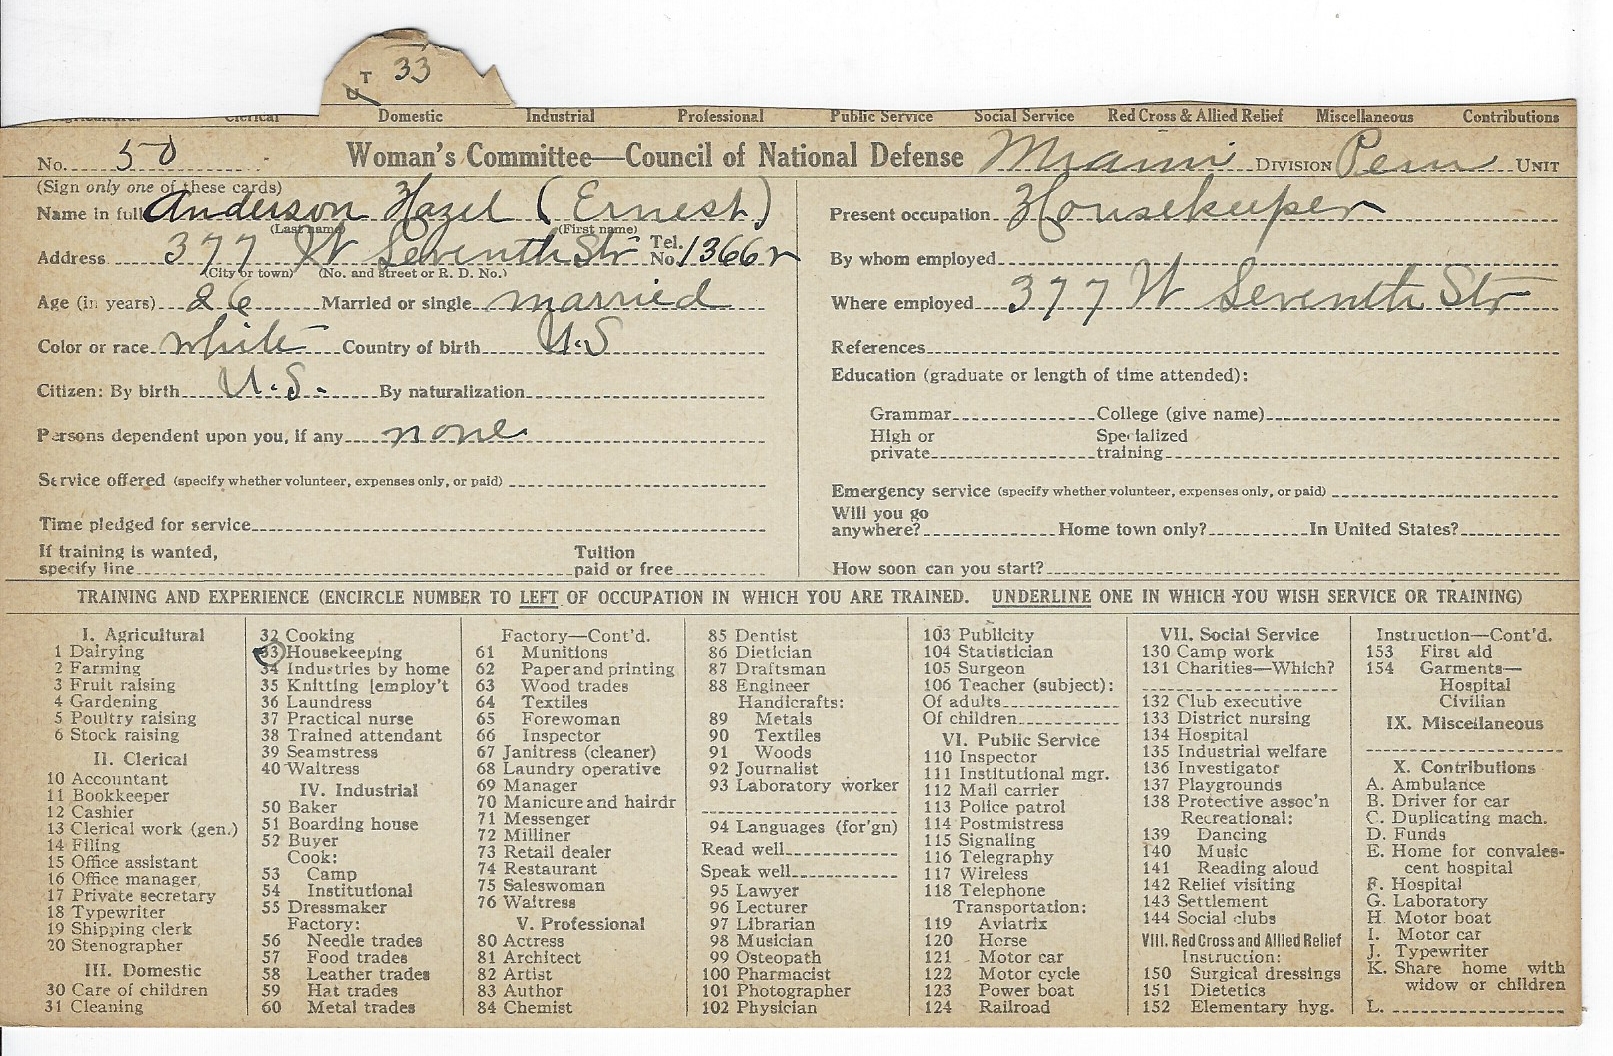 T 33
U
Agricultural Clerical Domestic Industrial Professional Public Service Social Service Red Cross & Allied Relief Miscellaneous Contributions
No. 50 Woman's Committee—Council of National Defense Miami DIVISION Peru UNIT
(Sign only one of these cards)
Name in full Anderson Hazel (Ernest)
(Last name) (First name)
Address 377 W Seventh Str Tel. No. 1366r
(City or town) (No. and street or R. D. No.)
Age (in years) 26 Married or single married
Color or race white Country of birth U.S
Citizen: By birth U.S. By naturalization
Persons dependent upon you, if any none
Service offered (specify whether volunteer, expenses only, or paid)
Time pledged for service
If training is wanted,
specify line Tuition paid or free
Present occupation Housekeeper
By whom employed
Where employed 377 W Seventh Str
References
Education (graduate or length of time attended):
Grammar College (give name)
High or private Specialized training
Emergency service (specify whether volunteer, expenses only, or paid)
Will you go
anywhere? Home town only? In United States?
How soon can you start?
TRAINING AND EXPERIENCE (ENCIRCLE NUMBER TO LEFT OF OCCUPATION IN WHICH YOU ARE TRAINED. UNDERLINE ONE IN WHICH YOU WISH SERVICE OR TRAINING)
I. Agricultural
1 Dairying
2 Farming
3 Fruit raising
4 Gardening
5 Poultry raising
6 Stock raising
II. Clerical
10 Accountant
11 Bookkeeper
12 Cashier
13 Clerical work (gen.)
14 Filing
15 Office assistant
16 Office manager
17 Private secretary
18 Typewriter
19 Shipping clerk
20 Stenographer
III. Domestic
30 Care of children
31 Cleaning
32 Cooking
33 Housekeeping
34 Industries by home
35 Knitting [employ't
36 Laundress
37 Practical nurse
38 Trained attendant
39 Seamstress
40 Waitress
IV. Industrial
50 Baker
51 Boarding house
52 Buyer
Cook:
53 Camp
54 Institutional
55 Dressmaker
Factory:
56 Needle trades
57 Food trades
58 Leather trades
59 Hat trades
60 Metal trades
Factory—Cont'd.
61 Munitions
62 Paper and printing
63 Wood trades
64 Textiles
65 Forewoman
66 Inspector
67 Janitress (cleaner)
68 Laundry operative
69 Manager
70 Manicure and hairdr
71 Messenger
72 Milliner
73 Retail dealer
74 Restaurant
75 Saleswoman
76 Waitress
V. Professional
80 Actress
81 Architect
82 Artist
83 Author
84 Chemist
85 Dentist
86 Dietician
87 Draftsman
88 Engineer
Handicrafts:
89 Metals
90 Textiles
91 Woods
92 Journalist
93 Laboratory worker
94 Languages (for'gn)
Read well
Speak well
95 Lawyer
96 Lecturer
97 Librarian
98 Musician
99 Osteopath
100 Pharmacist
101 Photographer
102 Physician
103 Publicity
104 Statistician
105 Surgeon
106 Teacher (subject):
Of adults
Of children
VI. Public Service
110 Inspector
111 Institutional mgr.
112 Mail carrier
113 Police patrol
114 Postmistress
115 Signaling
116 Telegraphy
117 Wireless
118 Telephone
Transportation:
119 Aviatrix
120 Horse
121 Motor car
122 Motor cycle
123 Power boat
124 Railroad
VII. Social Service
130 Camp work
131 Charities—Which?
132 Club executive
133 District nursing
134 Hospital
135 Industrial welfare
136 Investigator
137 Playgrounds
138 Protective assoc'n
Recreational:
139 Dancing
140 Music
141 Reading aloud
142 Relief visiting
143 Settlement
144 Social clubs
VIII. Red Cross and Allied Relief
Instruction:
150 Surgical dressings
151 Dietetics
152 Elementary hyg.
Instruction—Cont'd.
153 First aid
154 Garments—
Hospital
Civilian
IX. Miscellaneous
X. Contributions
A. Ambulance
B. Driver for car
C. Duplicating mach.
D. Funds
E. Home for convales-
cent hospital
F. Hospital
G. Laboratory
H. Motor boat
I. Motor car
J. Typewriter
K. Share home with
widow or children
L.